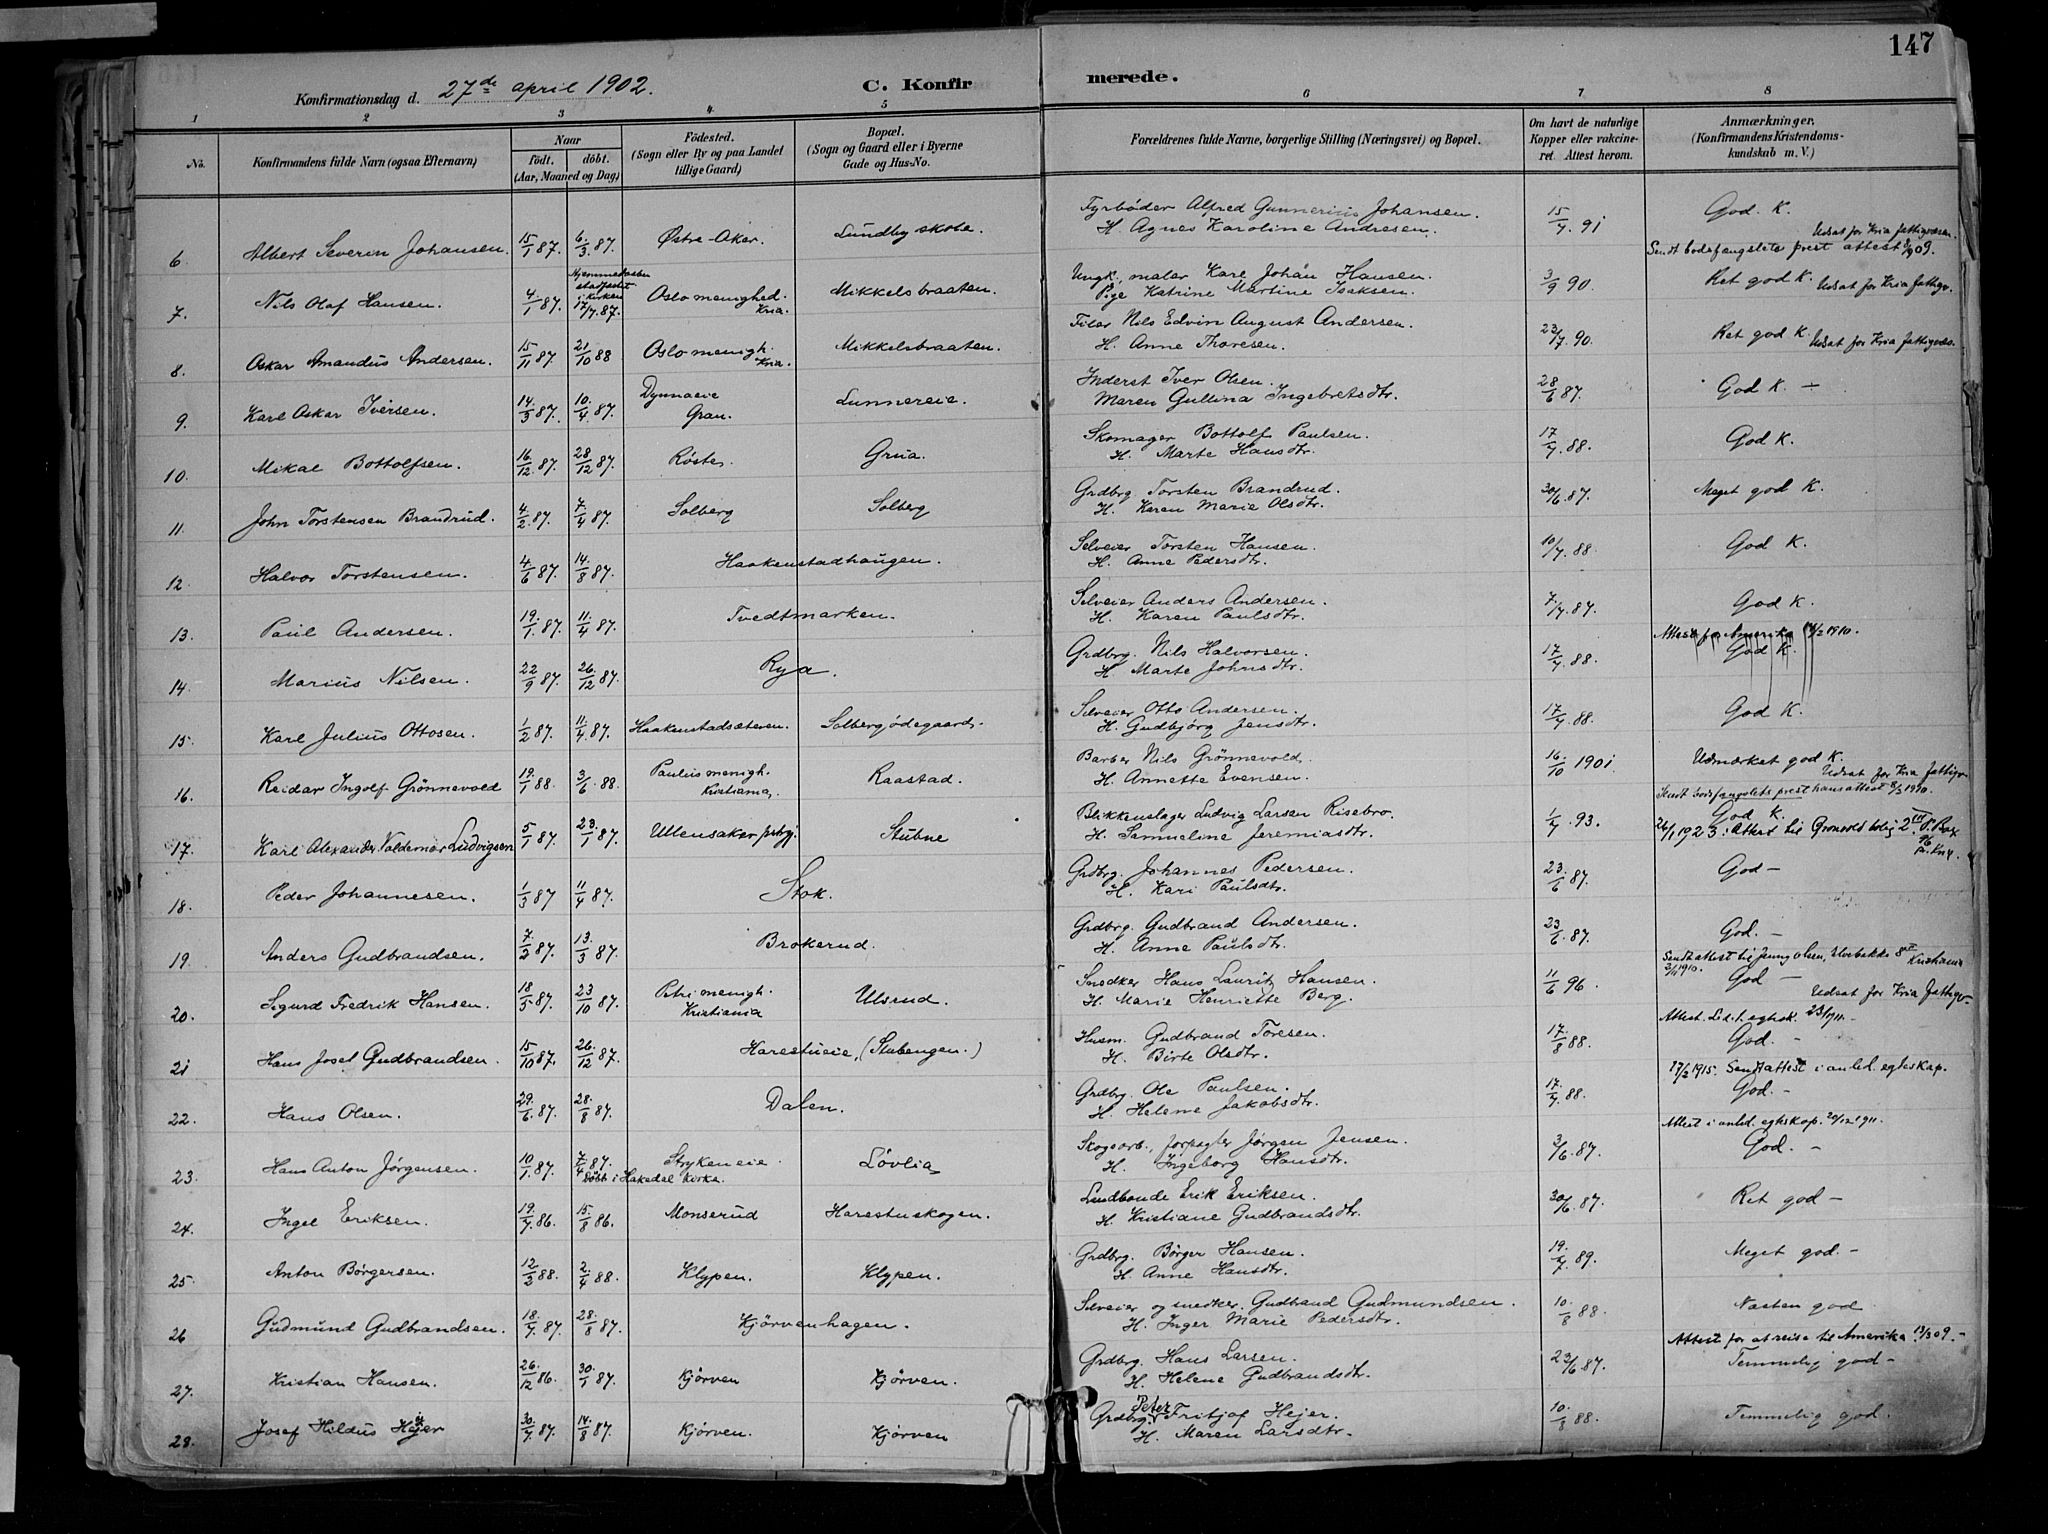 147
Konfirmationsdag d. 27de april 1902. C. Konfirmerede.
1 2 3 4 5 6 7 8
No. Konfirmandens fulde Navn (ogsaa Efternavn) Naar födt. döbt. (Aar, Maaned og Dag) Födested. (Sogn eller By og paa Landet tillige Gaard) Bopæl. (Sogn og Gaard eller i Byerne Gade og Hus-No. Forældrenes fulde Navne, borgerlige Stilling (Næringsvei) og Bopæl. Om havt de naturlige Kopper eller vakcineret. Attest herom. Anmærkninger. (Konfirmandens Kristendomskundskab m. V.)
6. Albert Severin Johansen. 15/1 87. 6/3 87. Østre Aker. Lundby skole. Fyrbøder Alfred Gunnerius Johansen. H. Agnes Karoline Andresen. 15/7 91 God. K. Udsat for Kria fattigvæsen.
Sendt bodsfængslets prest attest 09.
7. Nils Olaf Hansen. 4/1 87. Hjemmedøbt stadfæstet i kirken 17/7 87. Oslo menighed. Kria. Mikkelsbraaten. Ungk. maler Karl Johan Hansen. Pige Katrine Martine Isaksen. 3/9 90. Ret god K. Udsat for Kria fattigv.
8. Oskar Amandus Andersen. 15/11 87. 21/10 88 Oslo menigh. Kria. Mikkelsbraaten. Filer Nils Edvin August Andersen. H. Anne Thoresen. 23/7 90. Ret god K. Udsat for Kria fattigvæs.
9. Karl Oskar Iversen. 14/3 87. 10/4 87. Dynnaeie Gran. Lunnereie. Inderst Iver Olsen. Maren Gullina Ingebretsdtr. 28/6 87. God K. —
10. Mikal Bottolfsen. 16/12 87. 28/12 87. Røste. Grua. Skomager Bottolf Paulsen. H. Marte Hansdtr. 17/7 88. God K.
11. John Torstensen Brandrud. 4/2 87. 7/4 87. Solberg Solberg Grdbrg Torsten Brandrud. H. Karen Marie Olsdtr. 30/6 87. Meget god K.
12. Halvor Torstensen. 4/6 87. 14/8 87. Haakenstadhaugen. Selveier Torsten Hansen. H. Anne Pedersdtr. 10/7 88. God K.
13. Paul Andersen. 19/1 87. 11/4 87. Tvedtmarken. Selveier Anders Andersen. H. Karen Paulsdtr. 7/7 87. God K.
14. Marius Nilsen. 22/9 87. 26/12 87. Rya. Grdbrg. Nils Halvorsen. H. Marte Johnsdtr. 17/7 88. Attest for Amerika 1910. God K.
15. Karl Julius Ottosen. 1/2 87. 11/4 87. Haakenstadsæteren. Solbergødegaard. Selveier Otto Andersen. H. Gudbjørg Jensdtr. 17/7 88. God K.
16. Reidar Ingolf Grönnevold 19/1 88. 3/6 88. Paulus menigh. Kristiania. Raastad. Barber Nils Grönnevold. H. Annette Evensen. 16/10 1901 Udmærket god K. Udsat for Kria fattigv.
Sendt bodsfængslets prest hans attest 1910.
17. Karl Alexander Valdemar Ludvigsen 5/1 87. 23/1 87. Ullensaker prstgj. Stubne Blikkenslager Ludvig Larsen Risebro. H. Sammeline Jeremiasdtr. 1/7 93. God K. 26/1 1923. Attest til Grønvold bolig 2 III P. Box 96
18. Peder Johannesen. 1/3 87 11/4 87. Stok. Grdbrg. Johannes Pedersen. H. Kari Paulsdtr. 23/6 87. God —
19. Anders Gudbrandsen. 7/2 87. 13/3 87. Brokerud. Grdbrg. Gudbrand Andersen. H. Anne Paulsdtr. 23/6 87. God. —
Sendt attest til 1910. Kristiania
20. Sigurd Fredrik Hansen. 18/5 87. 23/10 87. Petri menigh. Kristiania Ulsrud. Snedker Hans Lauritz Hansen. H. Marie Henriette Berg. 11/6 96. God — Udsat for Kria fattigv.
21. Hans Josef Gudbrandsen. 15/10 87. 26/12 87. Harestueie, (Stubengen.) Husm. Gudbrand Toresen. H. Birte Olsdtr. 17/8 88. Attest egtesk. 23/1 1911. — God. —
22. Hans Olsen. 29/6 87. 28/8 87. Dalen. Grdbrg. Ole Paulsen. H. Helene Jakobsdtr. 17/7 88. 17/2 1915. Sendt attest i anled. egteskap. God. —
23. Hans Anton Jørgensen. 10/1 87. 7/4 87. Döbt i Hakedal Kirke. Strykeneie. Løvlia Skogsarb., forpagter Jørgen Jensen. H. Ingeborg Hansdtr. 3/6 87. Attest i anled. egteskap. 20/12 1911. God. —
24. Ingel Eriksen. 19/7 86. 15/8 86. Monserud Harestuskogen. Landbonde Erik Eriksen. H. Kristiane Gudbrandsdtr. 30/6 87. Ret god —
25. Anton Börgersen. 12/3 88. 2/4 88. Klypen. Klypen. Grdbrg. Börger Hansen. H. Anne Hansdtr. 19/7 89. Meget god. —
26 Gudmund Gudbrandsen. 18/7 87. 28/8 87. Kjørvenhagen. Selveier og snedker. Gudbrand Gudmundsen. H. Inger Marie Pedersdtr. 10/8 88. Næsten god
27. Kristian Hansen. 26/12 86. 30/1 87. Kjørven Kjørven. Grdbrg. Hans Larsen. H. Helene Gudbrandsdtr. 23/6 87. Attest for at reise til Amerika 13/3 09. — Temmelig god —
28. Josef Hildus Hejer 30/7 87. 14/8 87. Kjørven. Kjørven Grdbrg. Peter Fritjof Hejer. H. Maren Larsdtr. 10/8 88. Temmelig god.